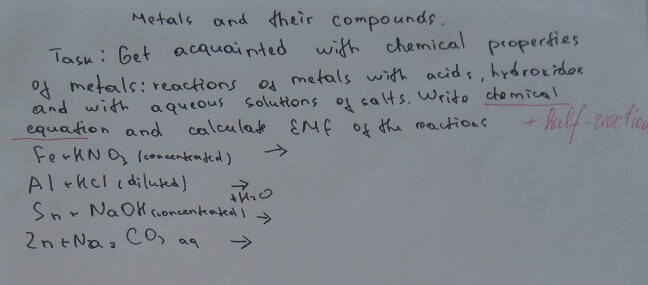 Metals and their compounds.
Task: Get acquainted with chemical properties
of metals: reactions of metals with acids, hydroxides
and with aqueous solutions of salts. Write chemical
equation and calculate EMF of the reactions + half-reaction
Fe + HNO3 (concentrated) →
Al + HCl (diluted) →
Sn + NaOH (concentrated) +H2O →
Zn + Na2CO3 aq →